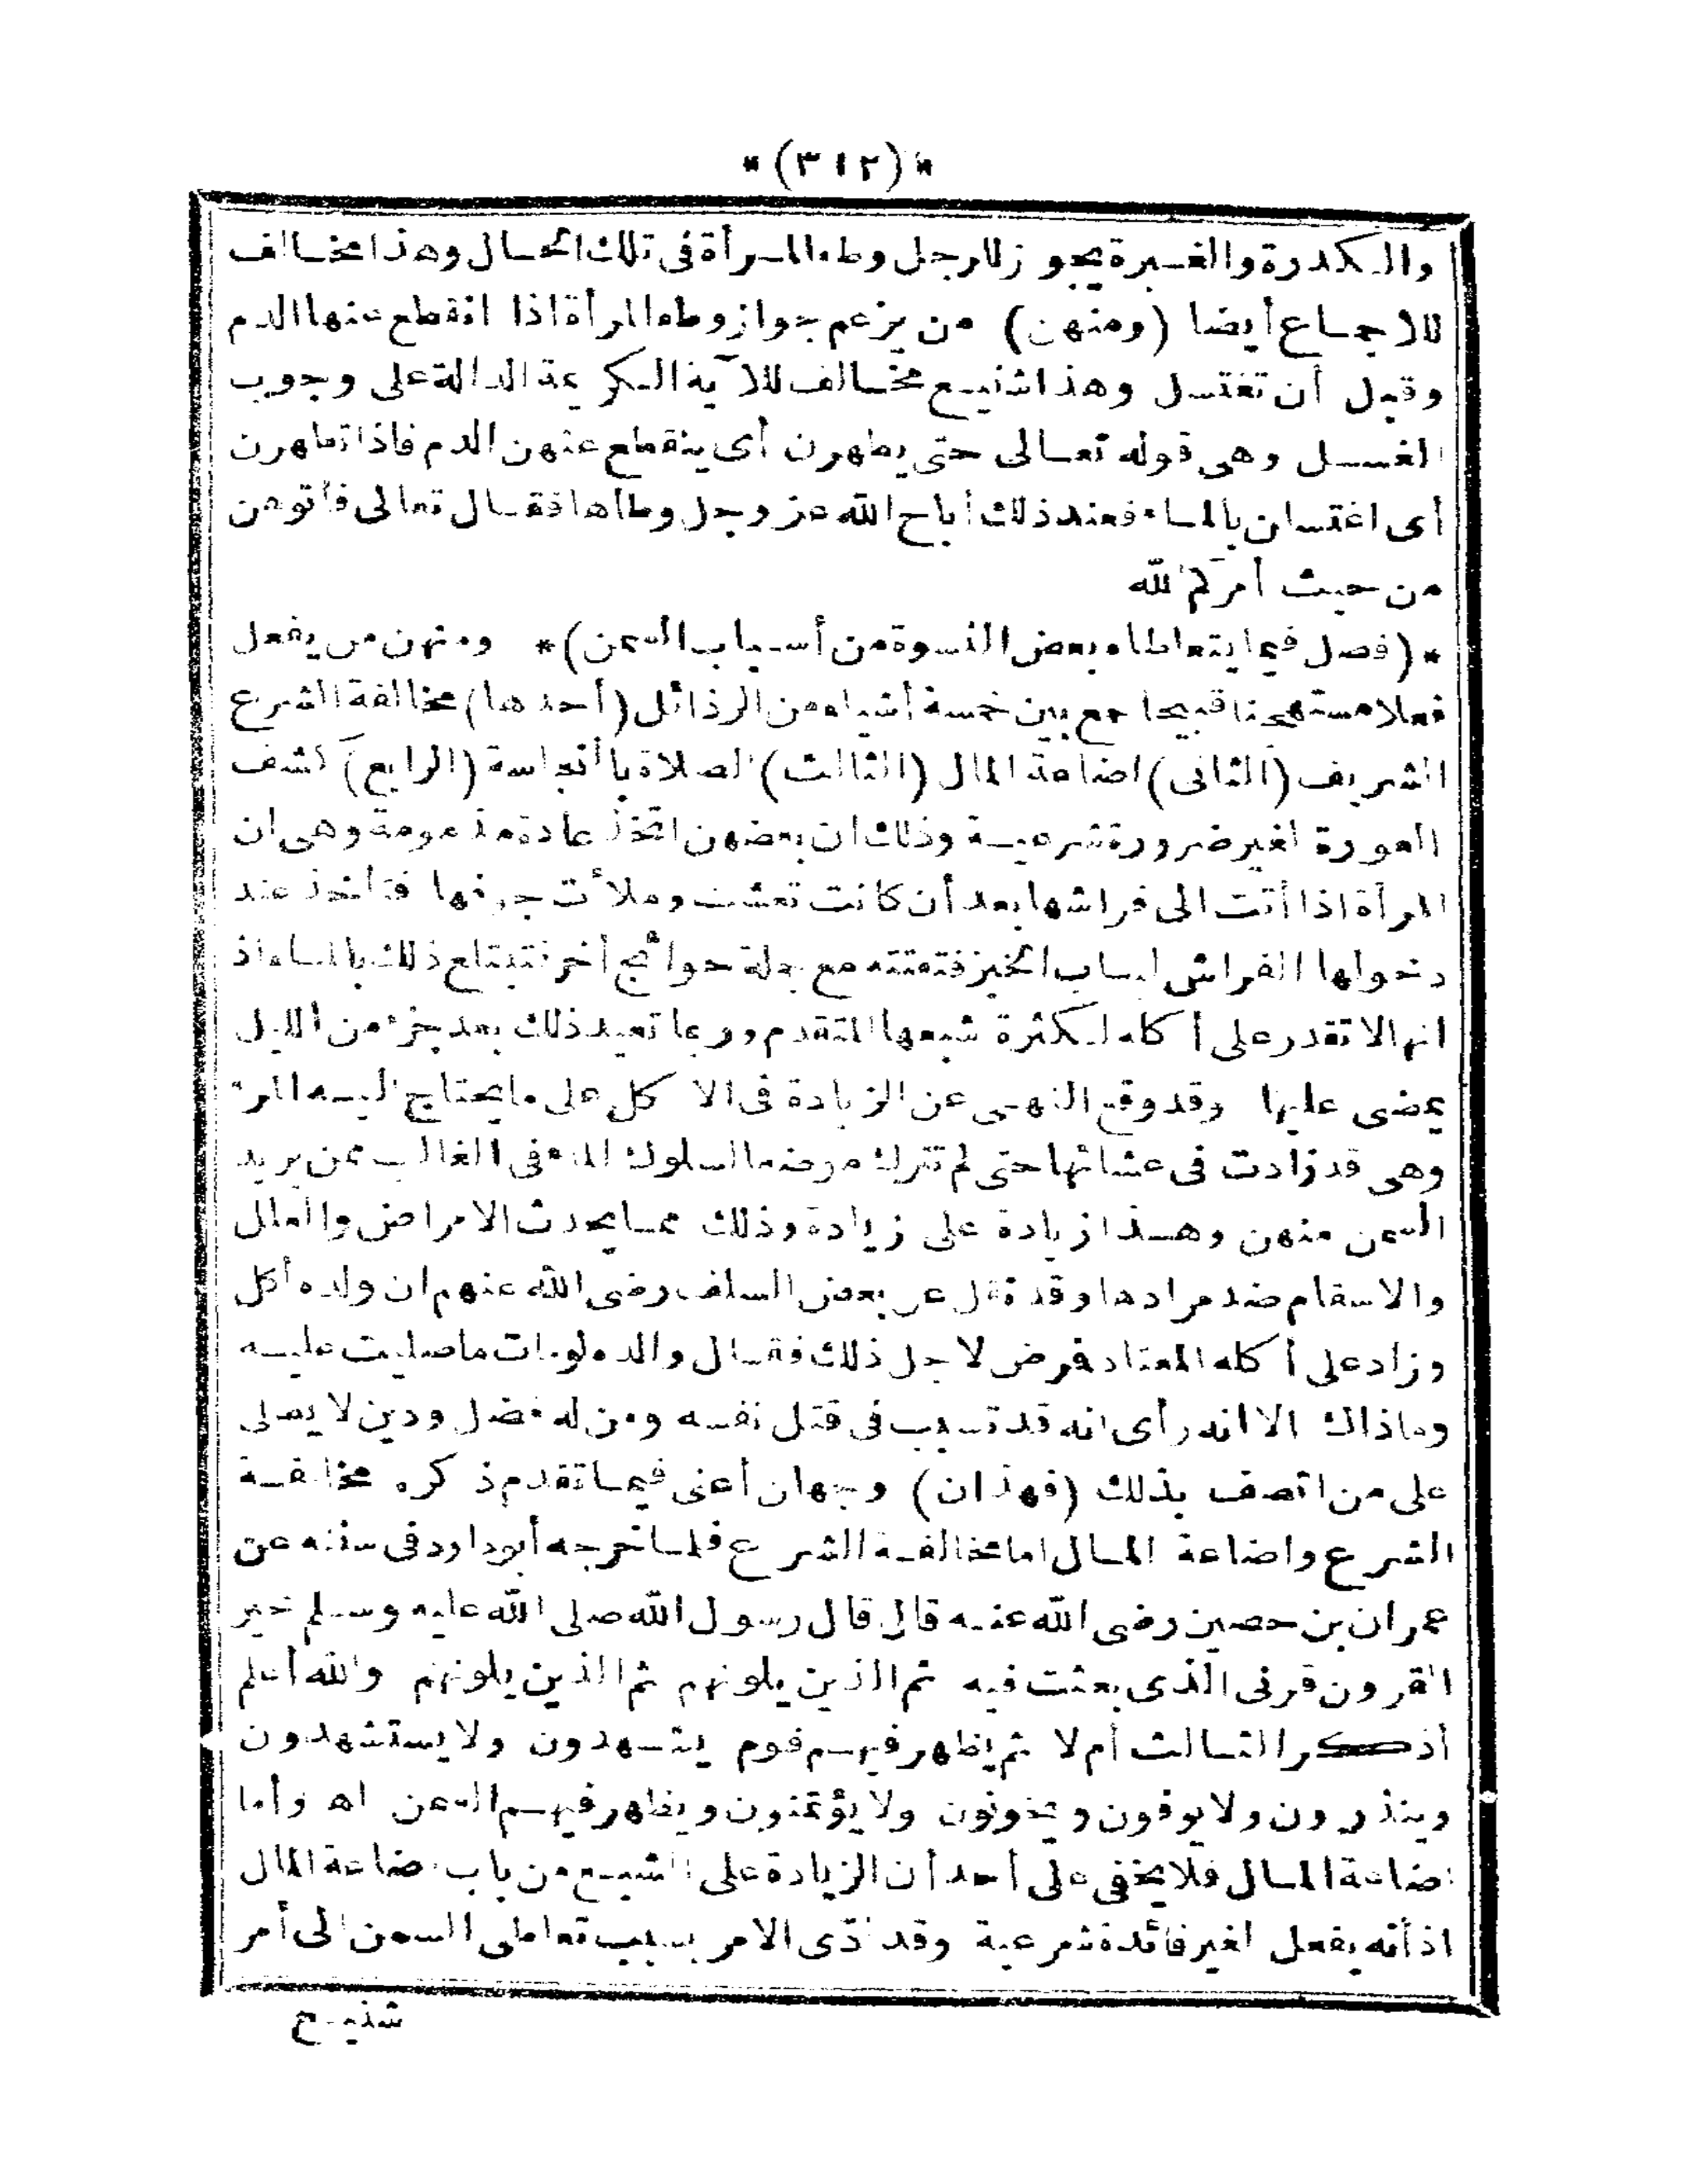 *(٣١٢)*
والكدرة والغبرة يجوز للرجل وطء المرأة في تلك الحال وهذا مخالف
للاجماع أيضا (ومنهن) من يزعم جواز وطء المرأة اذا انقطع عنها الدم
وقبل أن تغتسل وهذا شنيع مخالف للآية الكريمة الدالة على وجوب
الغسل وهى قوله تعالى حتى يطهرن أى ينقطع عنهن الدم فاذا تطهرن
أى اغتسلن بالماء فعند ذلك أباح الله عز وجل وطأها فقال تعالى فأتوهن
من حيث أمركم الله
*(فصل فيما يتعاطاه بعض النسوة من أسباب السمن)* ومنهن من يفعل
فعلا مستهجنا قبيحا جمع بين خمسة أشياء من الرذائل (أحدها) مخالفة الشرع
الشريف (الثانى) اضاعة المال (الثالث) الصلاة بالنجاسة (الرابع) كشف
العورة لغير ضرورة شرعية وذلك ان بعضهن اتخذ عادة مذمومة وهى ان
المرأة اذا أتت الى فراشها بعد أن كانت تعشت وملأت جوفها فتأخذ عند
دخولها الفراش لباب الخبز فتفتته مع جلة حوائج أخر فتبتلع ذلك بالماء اذ
انها لا تقدر على أكله لكثرة شبعها المتقدم وربما تعيد ذلك بعد جزء من الليل
يمضى عليها وقد وقع النهى عن الزيادة فى الاكل على ما يحتاج اليه المرء
وهى قد زادت فى عشائها حتى لم تترك موضعا لسلوك الماء فى الغالب ممن يريد
السمن منهن وهذا زيادة على زيادة وذلك مما يحدث الامراض والعلل
والاسقام ضد مرادها وقد نقل عن بعض السلف رضى الله عنهم ان ولده أكل
وزاد على أكله المعتاد فمرض لاجل ذلك فقال والده لو مات ما صليت عليه
وماذاك الا انه رأى انه قد تسبب فى قتل نفسه ومن له فضل ودين لا يصلى
على من اتصف بذلك (فهذان) وجهان أعنى فيما تقدم ذكره مخالفة
الشرع واضاعة المال اما مخالفة الشرع فلما خرجه أبو داود فى سننه عن
عمران بن حصين رضى الله عنه قال قال رسول الله صلى الله عليه وسلم خير
القرون قرنى الذى بعثت فيه ثم الذين يلونهم ثم الذين يلونهم والله أعلم
أذكر الثالث أم لا ثم يظهر فيهم قوم يشهدون ولا يستشهدون
وينذرون ولا يوفون ويخونون ولا يؤتمنون ويظهر فيهم السمن اه وأما
اضاعة المال فلا يخفى على أحد أن الزيادة على الشبع من باب اضاعة المال
اذ أنه يفعل لغير فائدة شرعية وقد أدى الامر بسبب تعاطى السمن الى أمر
شنيع